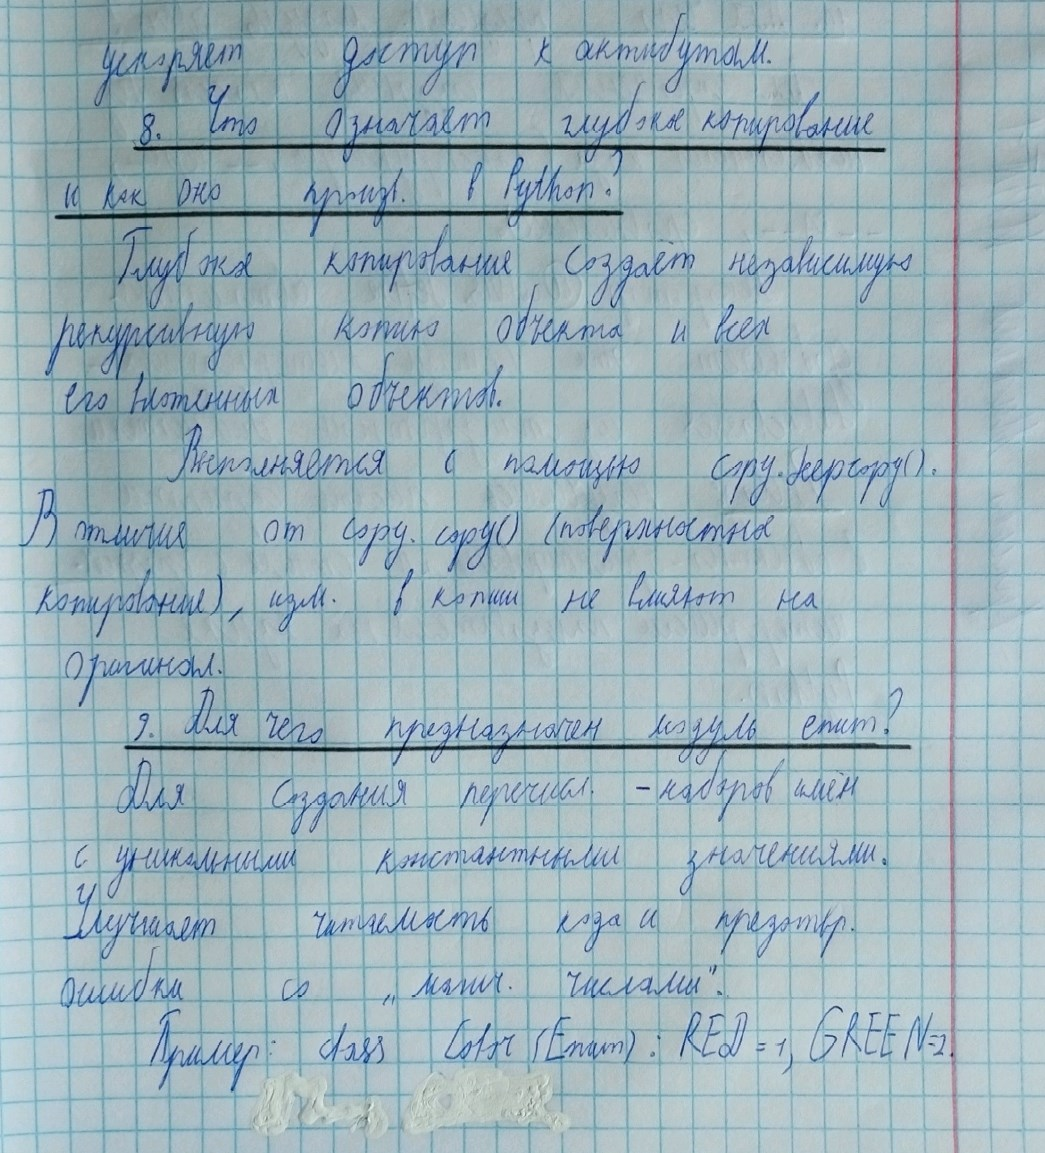 ускоряет доступ к актибутам.
8. Что означает глубокое копирование
и как оно произв. в Python?
Глубокое копирование создаёт независимую
рекурсивную копию объекта и всех
его вложенных объектов.
Выполняется с помощью copy.deepcopy().
В отличие от copy.copy() (поверхностное
копирование), изм. в копии не влияют на
оригинал.
9. Для чего предназначен модуль enum?
Для создания перечисл. - наборов имён
с уникальными константными значениями.
Улучшает читаемость кода и предотвр.
ошибки со „магич. числами".
Пример: class Color (Enum): RED = 1, GREEN=2.